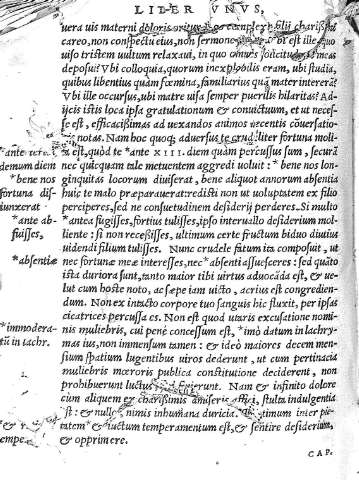 LIBER VNVS,
uera uis materni doloris oritur
careo, non conspectu eius, non sermone est ille quo
uiso tristem uultum relaxaui, in quo omnes sollicitudines meas
deposui? Vbi colloquia, quorum inexplebilis eram, ubi studia,
quibus libentius quàm fœmina, familiarius quàm mater intererã?
Vbi ille occursus, ubi matre uisa semper puerilis hilaritas? Ad
ijcis istis loca ipsa gratulationum & conuictuum, et ut neces
se est, efficacissimas ad uexandos animos recentis cõuersatio
notas. Nam hoc quoq; aduersus te crudeliter fortuna moli
est, quòd te *ante XIII. diem quàm percussus sum, securã
nec quicquam tale metuentem aggredi uoluit: *bene nos lon-
ginquitas locorum diuiserat, bene aliquot annorum absentia
huic te malo præparauerat: redisti non ut uoluptatem ex filio
perciperes, sed ne consuetudinem desiderij perderes. Si multo
*antea fugisses, fortius tulisses, ipso interuallo desiderium mol-
liente: si non recessisses, ultimum certe fructum biduo diutius
uidendi filium tulisses. Nunc crudele fatum ita composuit, ut
nec fortunæ meæ interesses, nec *absenti assuesceres: sed quãto
ista duriora sunt, tanto maior tibi uirtus aduocãda est, & ue-
lut cum hoste noto, ac sæpe iam uicto, acrius est congredien-
dum. Non ex intacto corpore tuo sanguis hic fluxit, per ipsas
cicatrices percussa es. Non est quod utaris excusatione nomi-
nis muliebris, cui penè concessum est, *imò datum in lachry-
mas ius, non immensum tamen: & ideò maiores decem men-
sium spatium lugentibus uiros dederunt, ut cum pertinacia
muliebris mœroris publica constitutione deciderent, non
prohibuerunt luctus Nam & infinito dolore
cum aliquem & charißimis amiseris affici, stulta indulgentia
st: & nullo, nimis inhumana duricia. timum inter pie
tatem * & iuctum temperamentum est, & sentire desiderium,
& opprimere.
CAP.
*ante
demum diem
*bene nos
fortuna dis-
iunxerat
*ante ab-
fuisses,
*absentiæ
*immodera-
tũ in lachr.
& r
tempe.